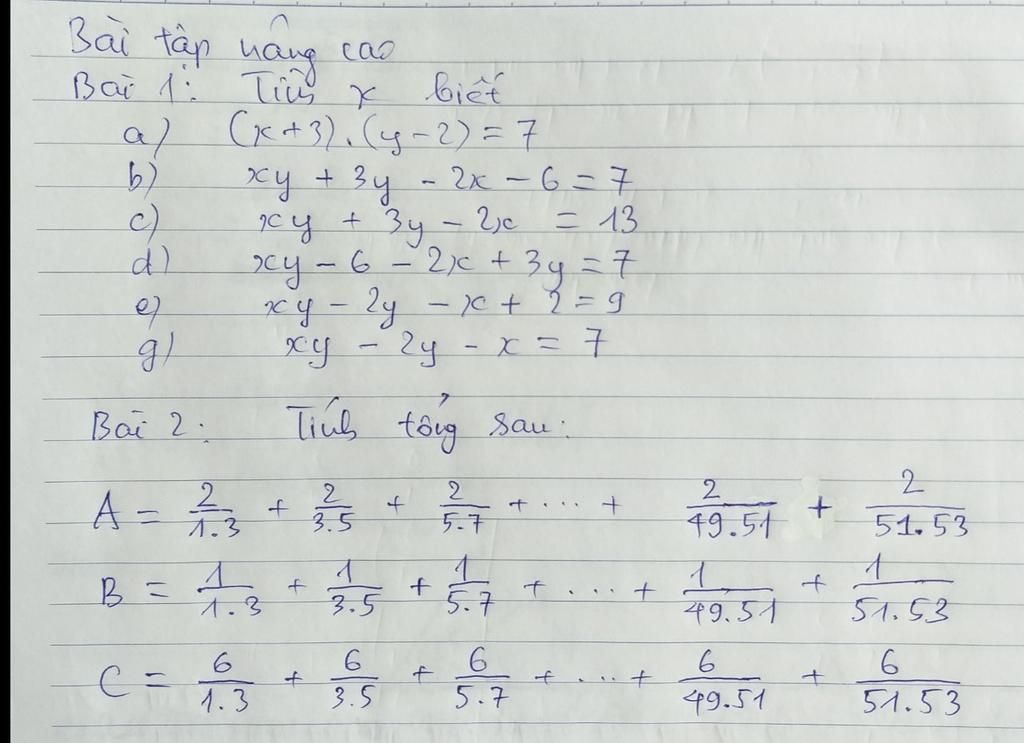 Bài tập nâng cao
Bài 1: Tìm x biết
a) (x+3).(y-2) = 7
b) xy + 3y - 2x - 6 = 7
c) xy + 3y - 2x = 13
d) xy - 6 - 2x + 3y = 7
e) xy - 2y - x + 2 = 9
g) xy - 2y - x = 7
Bài 2: Tính tổng sau:
A = 2/1.3 + 2/3.5 + 2/5.7 + ... + 2/49.51 + 2/51.53
B = 1/1.3 + 1/3.5 + 1/5.7 + ... + 1/49.51 + 1/51.53
C = 6/1.3 + 6/3.5 + 6/5.7 + ... + 6/49.51 + 6/51.53